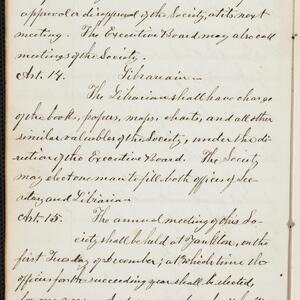 approval or disapproval of the Society, at its next
meeting. The Executive Board may also call
meetings of the Society.
Art. 14. Librarian.
The Librarian shall have charge
of the books, papers, maps, charts, and all other
similar valuables of the Society, under the di-
rection of the Executive Board. The Society
may elect one man to fill both offices of Sec-
retary and Librarian
Art. 15. The annual meeting of this So-
ciety shall be held at Yankton, on the
first Tuesday of December; at which time the
officers for the succeeding year shall be elected,